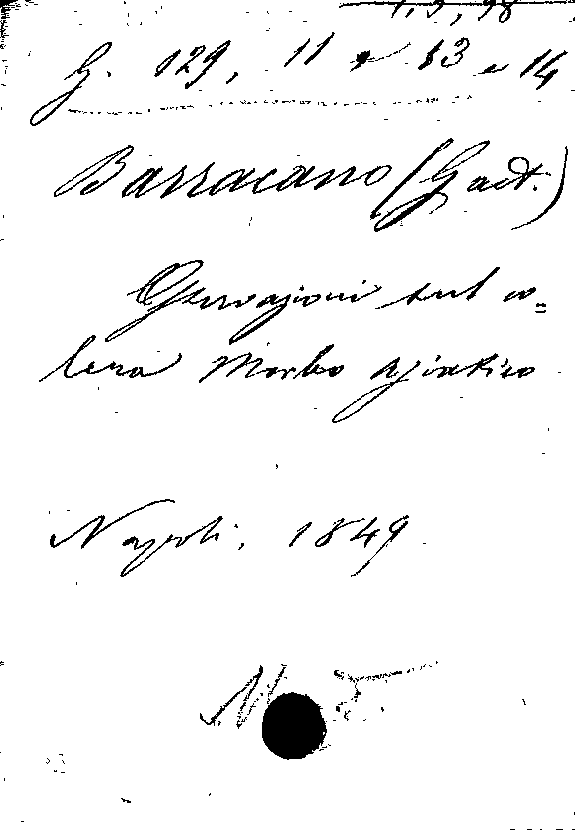 G. 129, 11 e 13 e 14
Barracano (Gaet.)
Osservazioni sul co=
lera Morbo Asiatico
Napoli, 1849